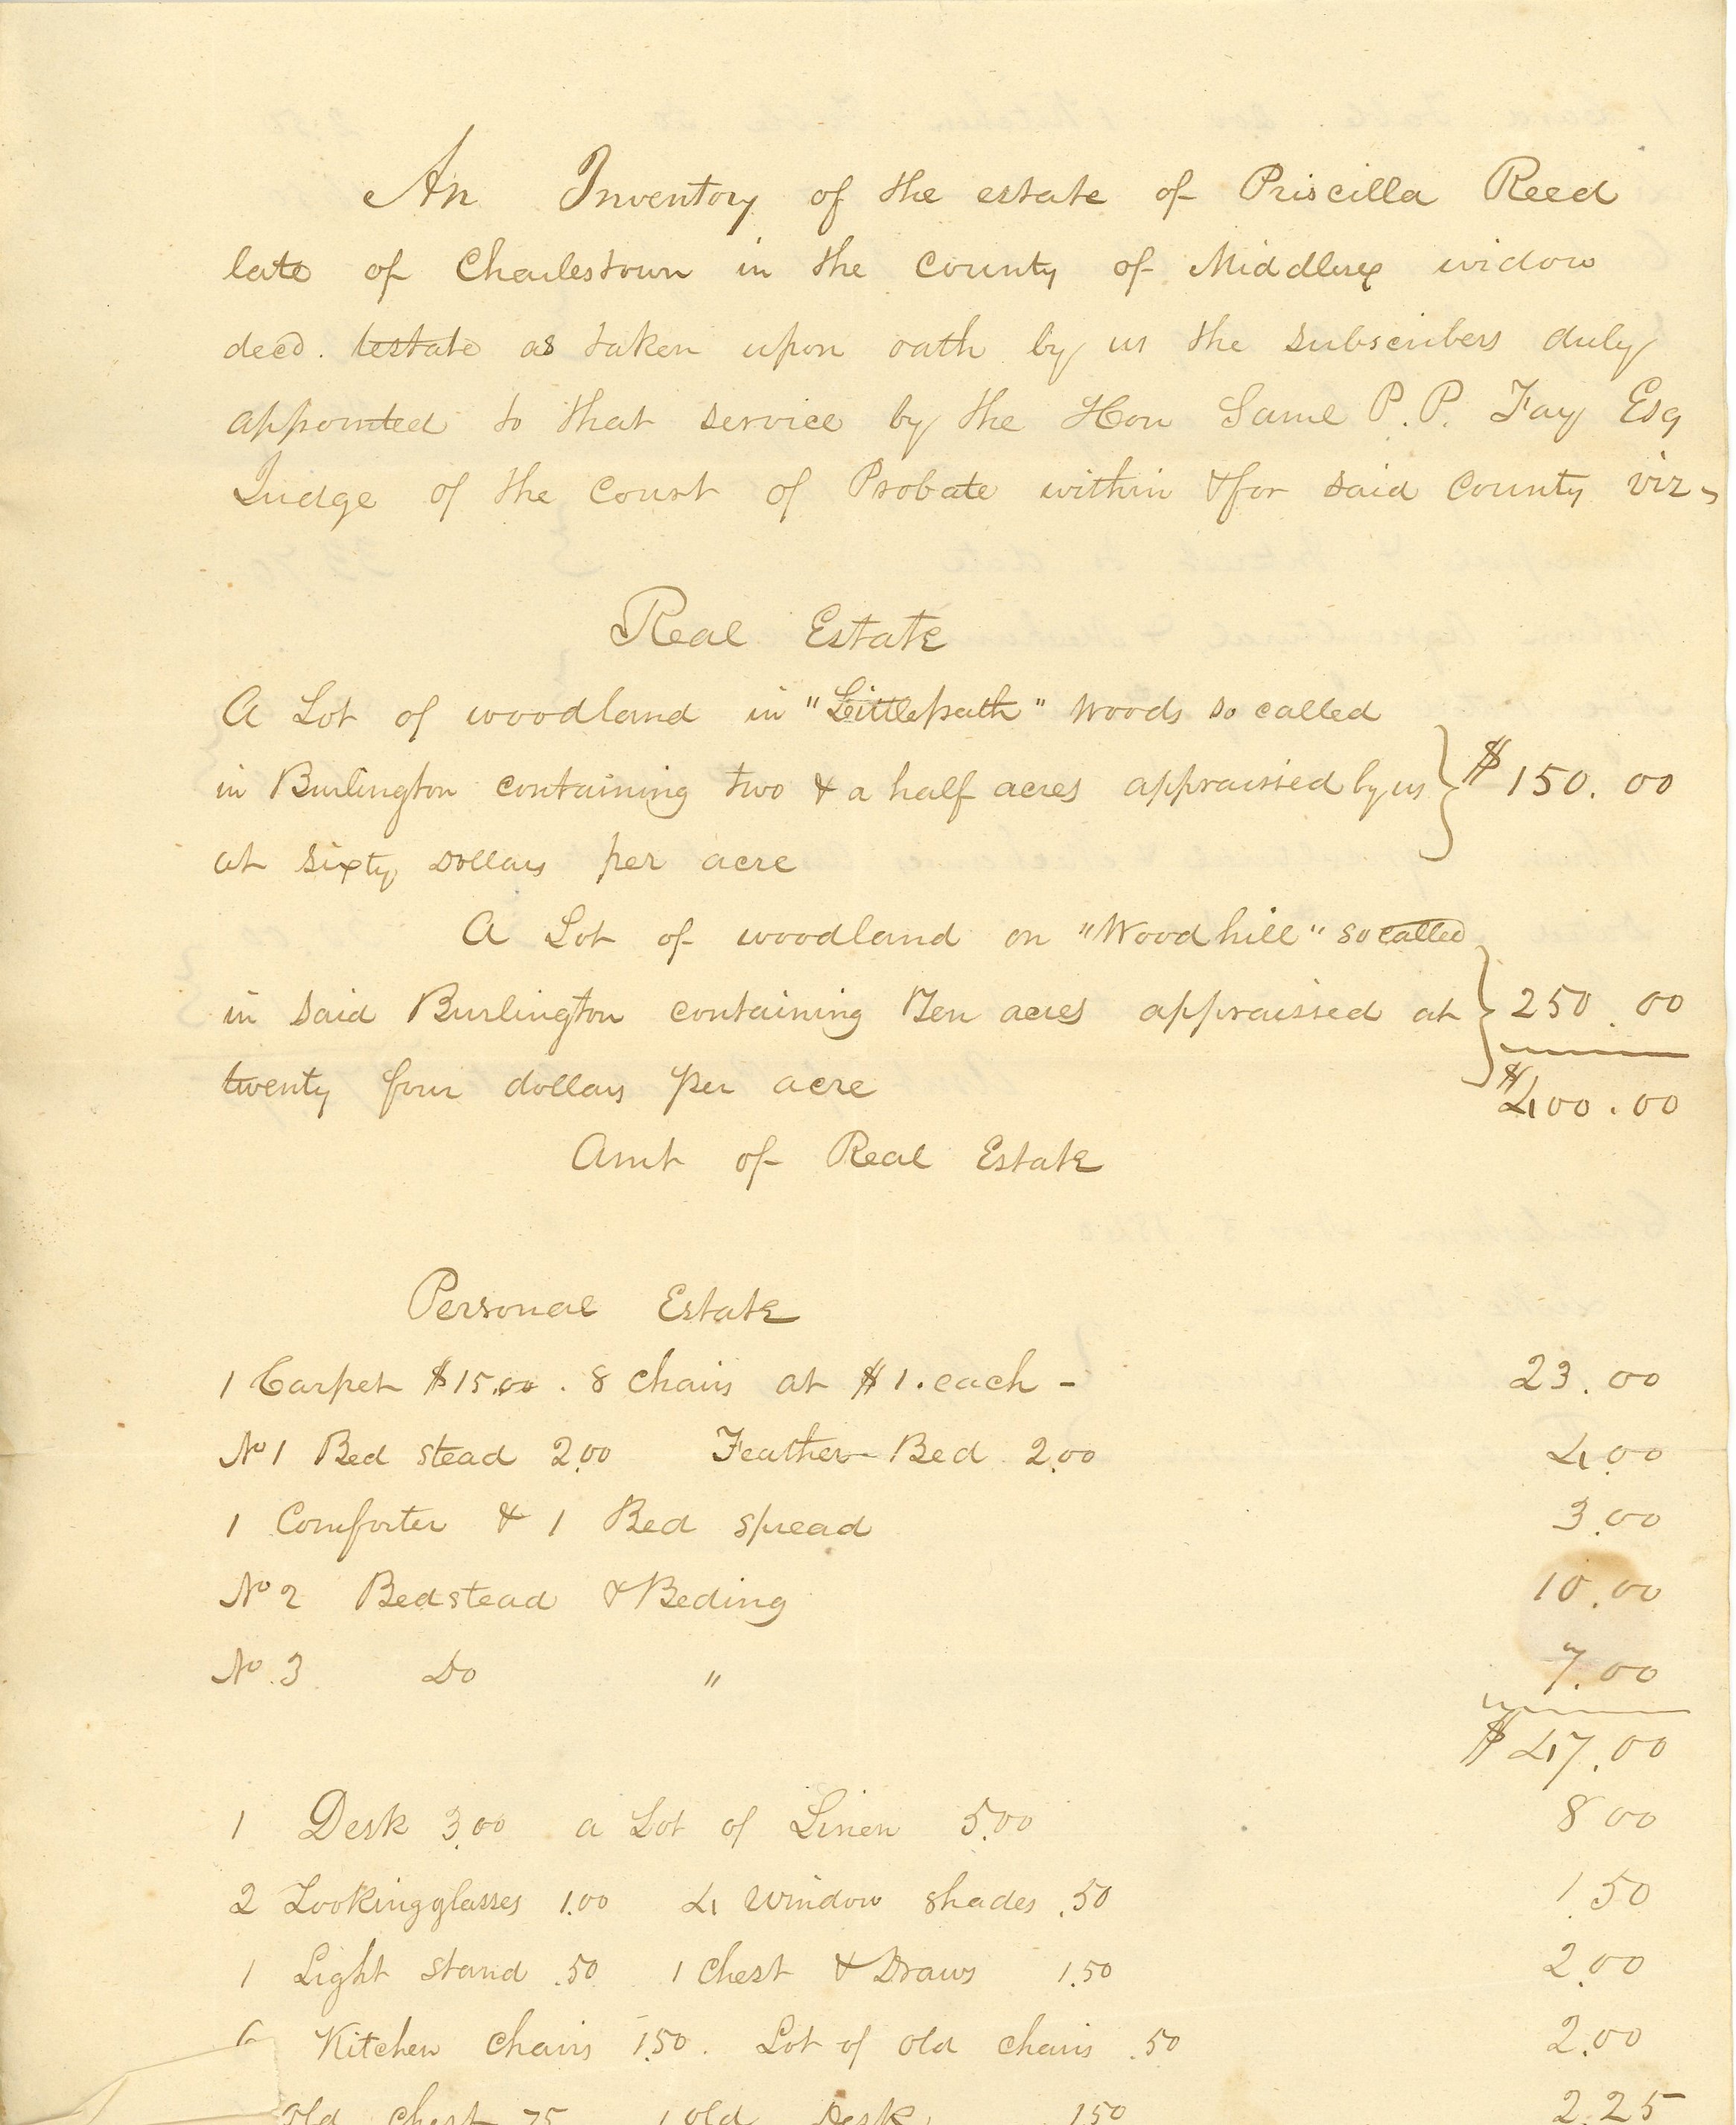 An Inventory of the estate of Priscilla Reed
late of Charlestown in the County of Middlesex widow
decd. testate as taken upon oath by us the subscribers duly
appointed to that service by the Hon Saml P. P. Fay Esq
Judge of the Court of Probate within & for said County viz
Real Estate
A Lot of woodland in "Littlepath" Woods so called
in Burlington containing two & a half acres appraissed by us $150.00
at sixty Dollars per acre
A Lot of woodland on "Woodhill" so called
in said Burlington containing Ten acres appraissed at 250.00
twenty four dollars per acre $400.00
Amt of Real Estate
Personal Estate
1 Carpet $15.00. 8 Chairs at $1. each - 23.00
No 1 Bed stead 2.00 Feather Bed 2.00 4.00
1 Comforter & 1 Bed spread 3.00
No 2 Bedstead & Beding 10.00
No. 3 Do " 7.00
$47.00
1 Desk 3.00 a Lot of Linen 5.00 8 00
2 Lookingglasses 1.00 4 Window shades .50 1.50
1 Light stand .50 1 Chest & Draws 1.50 2.00
6 Kitchen Chairs 1.50. Lot of old chairs .50 2.00
old chest 75 1 old Desk 1.50 2.25